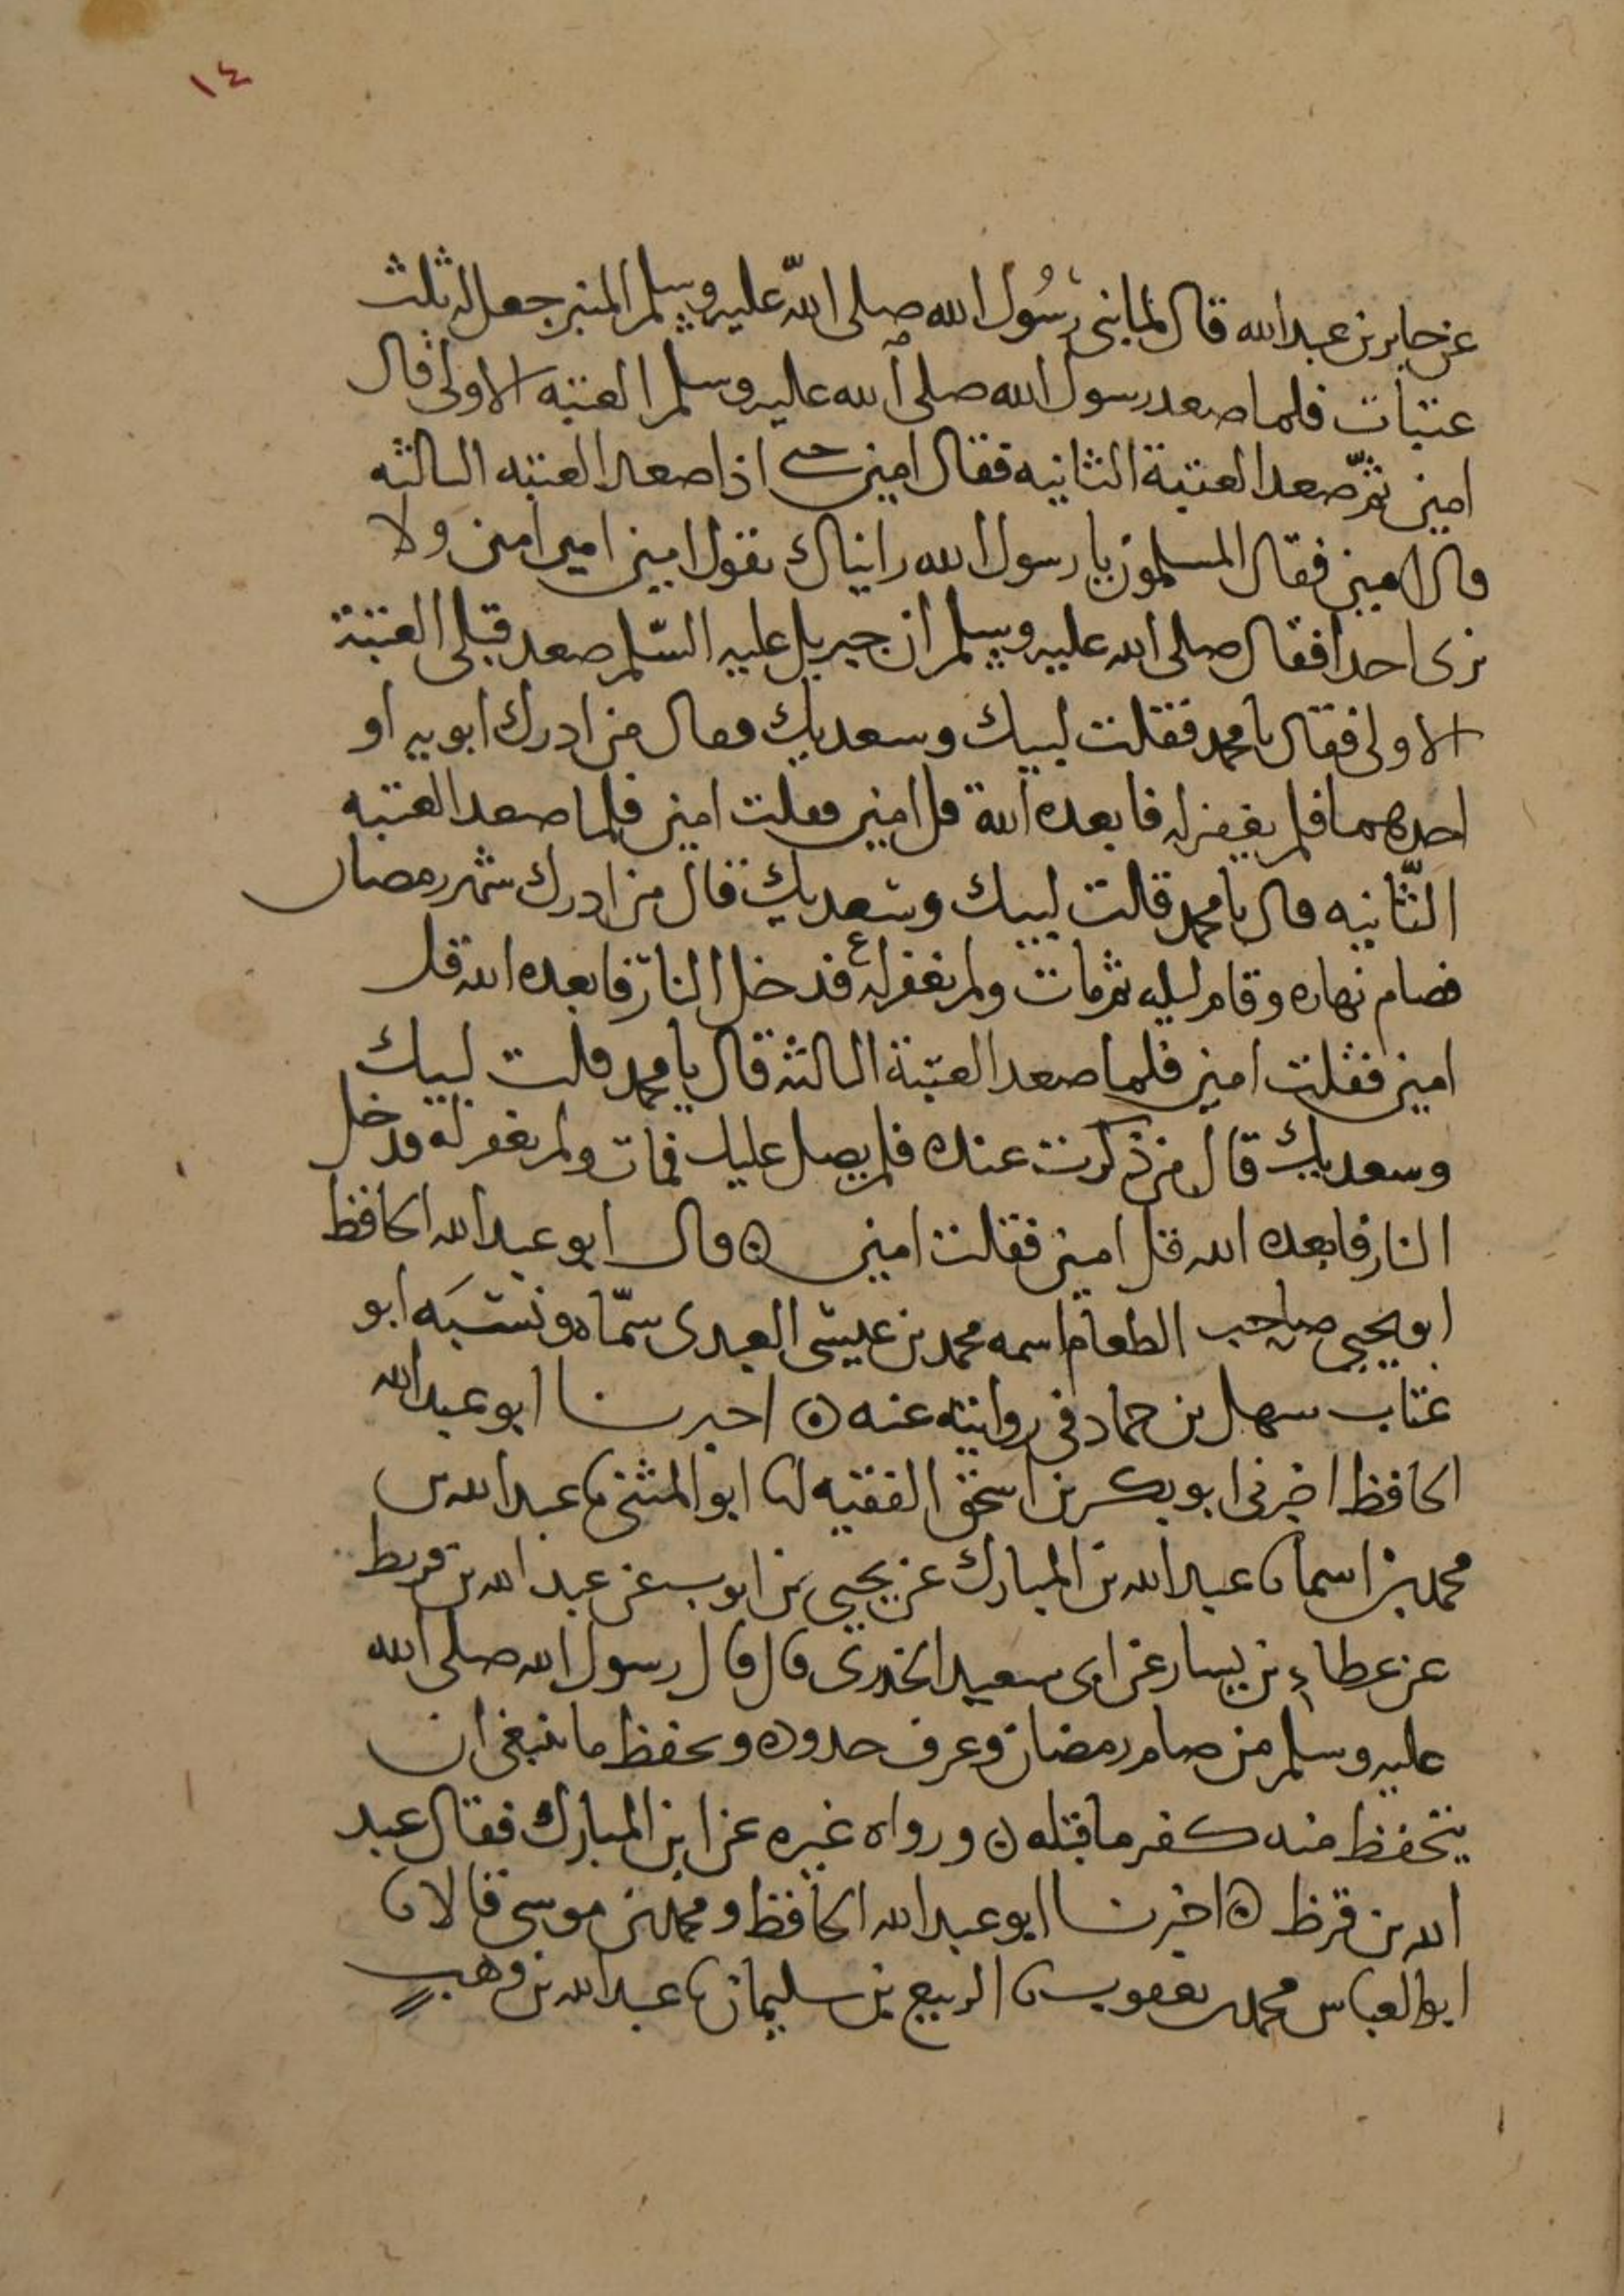 ١٤
عن جابر بن عبد الله قال لما بنى رسُول الله صلى اللّه عليه وسلم المنبر جعل له ثلث
عتبات فلما صعد رسول الله صلى الله عليه وسلم العتبه الاولى قال
امين ثمّ صعد العتبة الثانيه فقال امين حتى اذا صعد العتبه الثالثه
قال امين فقال المسلمون يا رسول الله رايناك تقول امين امين امين ولا
نرى احدا فقال صلى الله عليه وسلم ان جبريل عليه السّلم صعد قبلى العتبة
الاولى فقال يا محمد فقلت لبيك وسعديك فقال من ادرك ابويه او
احدهما فلم يغفر له فابعده الله قل امين فقلت امين فلما صعد العتبه
الثّانيه قال يا محمد قالت لبيك وسعديك قال من ادرك شهر رمضان
فصام نهاره وقام ليله ثم مات ولم يغفر له فدخل النار فابعده الله قل
امين فقلت امين فلما صعد العتبة الثالثه قال يا محمد قلت لبيك
وسعديك قال من ذكرت عنده فلم يصل عليك فمات ولم يغفر له فدخل
النار فابعده الله قل امين فقلت امين ۞ قال ابو عبد الله الحافظ
ابو يحيى صاحب الطعام اسمه محمد بن عيسى العبدى سمّاه ونسبَه ابو
عتاب سهل بن حماد فى روايته عنه ۞ اخبرنا ابو عبد الله
الحافظ اخبرنى ابو بكر بن اسحق الفقيه انا ابو المثنى نا عبد الله بن
محمد بن اسما نا عبد الله بن المبارك عن يحيى بن ايوب عن عبد الله بن قريط
عن عطاء بن يسار عن ابى سعيد الخدرى قال قال رسول الله صلى الله
عليه وسلم من صام رمضان وعرف حدوده وتحفظ ما ينبغى ان
يتحفظ منه كفر ما قبله ۞ ورواه غيره عن ابن المبارك فقال عبد
الله بن قرظ ۞ اخبرنا ابو عبد الله الحافظ ومحمد بن موسى قالا نا
ابو العباس محمد بن يعقوب نا الربيع بن سليمان نا عبد الله بن وهب